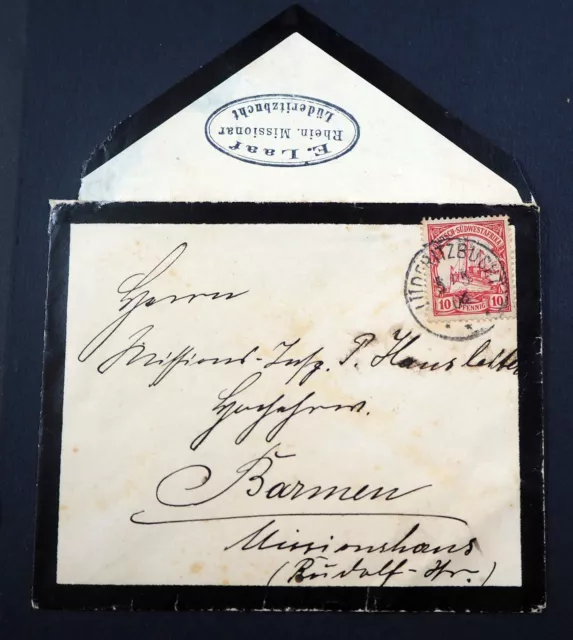 E. Laar
Rhein. Missionar
Lüderitzbucht
DEUTSCH-SÜDWESTAFRIKA
10 PFENNIG 10
LÜDERITZBUCHT
Herrn
Missions-Insp. P. Haussleiter
Hochehrw.
Barmen
Missionshaus
(Rudolf-Str.)